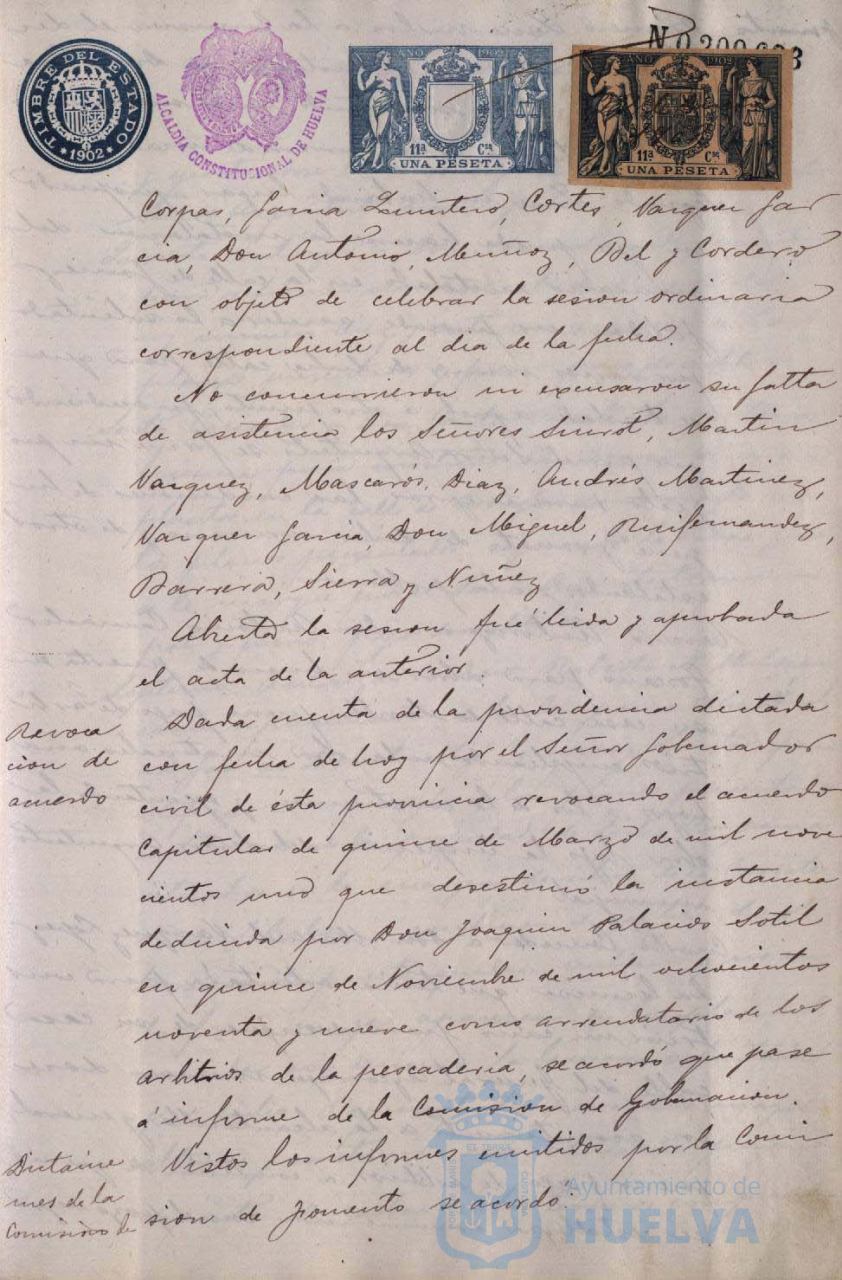 Nº 0.200.
TIMBRE DEL ESTADO
*1902*
ALCALDIA CONSTITUCIONAL DE HUELVA
AÑO 1902
11ª Cˢᵉ
UNA PESETA
AÑO 1902
11ª Cˢᵉ
UNA PESETA
Corpas, Garcia Quintero, Cortes, Vazquez Gar
cia, Don Antonio, Muñoz, Bel y Cordero
con objeto de celebrar la sesion ordinaria
correspondiente al dia de la fecha.
No concurrieron ni excusaron su falta
de asistencia los Señores Martin
Vazquez, Mascarós, Diaz, Andrés Martinez,
Vazquez Garcia, Don Miguel, Ruifernandez,
Barrera, Sierra y Nuñez
Abierta la sesion fué leida y aprobada
el acta de la anterior.
Revoca
cion de
acuerdo
Dada cuenta de la providencia dictada
con fecha de hoy por el Señor Gobernador
civil de ésta provincia revocando el acuerdo
Capitular de quince de Marzo de mil nove
cientos uno que desestimó la instancia
deducida por Don Joaquin Palacios Sotil
en quince de Noviembre de mil ochocientos
noventa y nueve como arrendatario de los
arbitrios de la pescaderia, se acordó que pase
á informe de la Comision de Gobernacion.
Dictáme
nes de la
Comision de
Vistos los informes emitidos por la Comi
sion de Fomento se acordó:
Ayuntamiento de
HUELVA